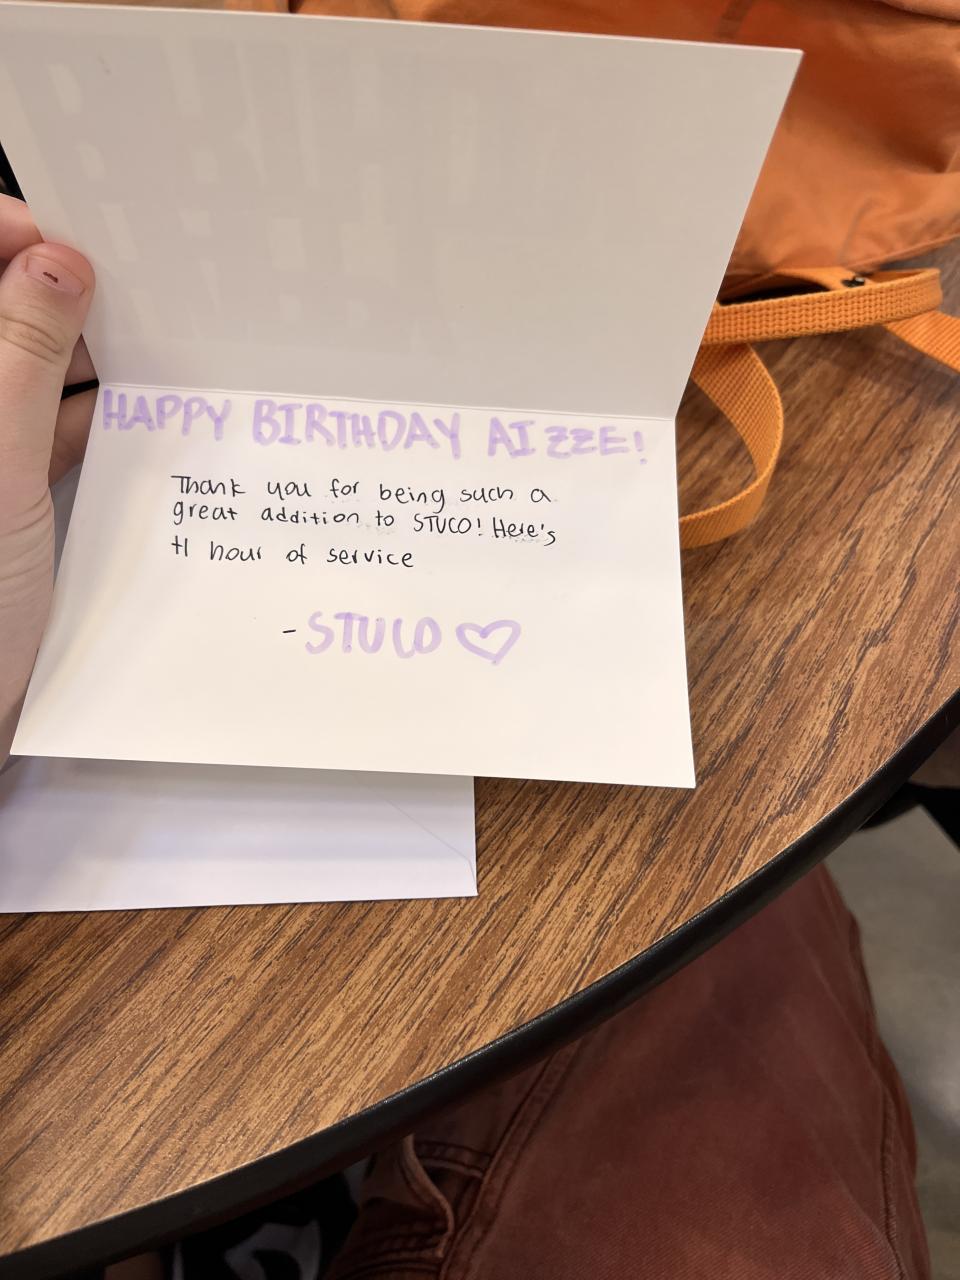 HAPPY BIRTHDAY AIZZE!
Thank you for being such a
great addition to STUCO! Here's
+1 hour of service
- STUCO ♡